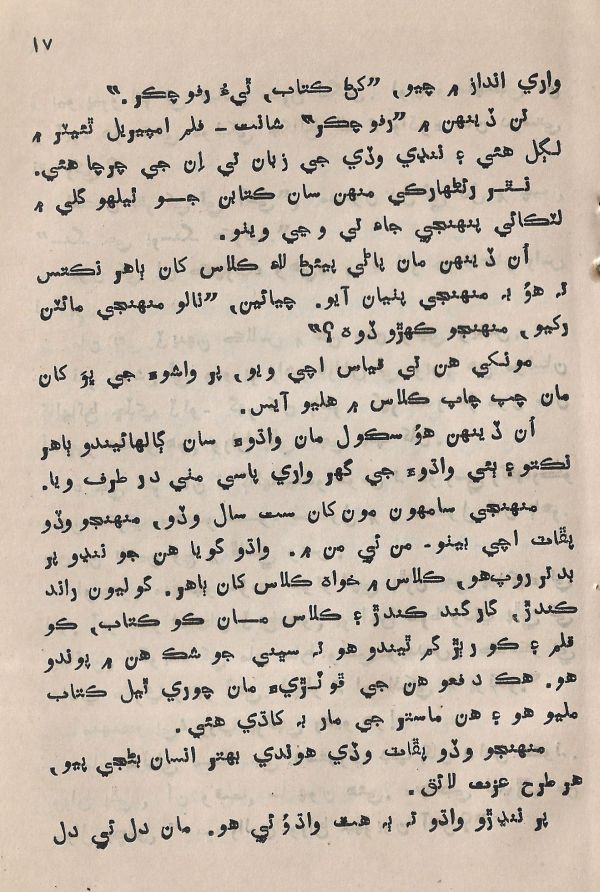 ۱۷
واري انداز ۾ چيو، ”کڻ ڪتاب، ٿيءُ رفو چڪر.“
تن ڏينهن ۾ ”رفو چڪر“ شانت - فلم امپيريل ٿئيٽر ۾
لڳل هئي ۽ ننڍي وڏي جي زبان تي اِن جي چرچا هئي.
نٽر رئڻهارڪي منهن سان ڪتابن جو ٿيلهو گلي ۾
لٽڪائي پنهنجي جاءِ تي وڃي ويٺو.
اُن ڏينهن مان پاڻي پيئڻ لاءِ ڪلاس کان ٻاهر نڪتس
ته هوُ به منهنجي پٺيان آيو. چيائين، ”نالو منهنجي مائٽن
رکيو، منهنجو ڪهڙو ڏوهه؟“
مونکي هن تي قياس اچي ويو، پر واشوءَ جي ڀوَ کان
مان چپ چاپ ڪلاس ۾ هليو آيس.
اُن ڏينهن هوُ سڪول مان واڌوءَ سان ڳالهائيندو ٻاهر
نڪتو ۽ ٻئي واڌوءَ جي گهر واري پاسي مني در طرف ويا.
منهنجي سامهون مون کان ست سال وڏو، منهنجو وڏو
ڀفات اچي بيٺو - من ئي من ۾. واڌو گويا هن جو ننڍو پر
بدتر روپ هو، ڪلاس ۾ خواهه ڪلاس کان ٻاهر. گوليون راند
ڪندڙ، گار گند ڪندڙ ۽ ڪلاس مان ڪو ڪتاب، ڪو
قلم ۽ ڪو رٻڙ گم ٿيندو هو ته سڀني جو شڪ هن ۾ پوندو
هو. هڪ دفعو هن جي ڦوٽڙيءَ مان چوري ٿيل ڪتاب
مليو هو ۽ هن ماستر جي مار به کاڌي هئي.
منهنجو وڏو ڀفات وڏي هوندي بهتر انسان بڻجي پيو،
هر طرح عزت لائق.
پر ننڍڙو واڌو ته به هت واڌوُ ئي هو. مان دل ئي دل